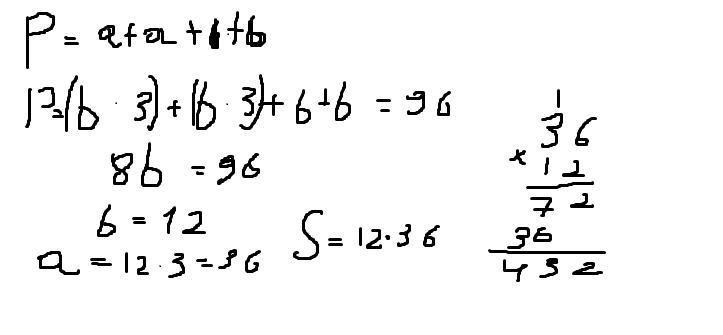 P = a+a+b+b
P=(b · 3)+(b · 3)+b+b = 96
8b = 96
b = 12
a = 12·3=36
S = 12·36
1
36
× 12
72
36
432